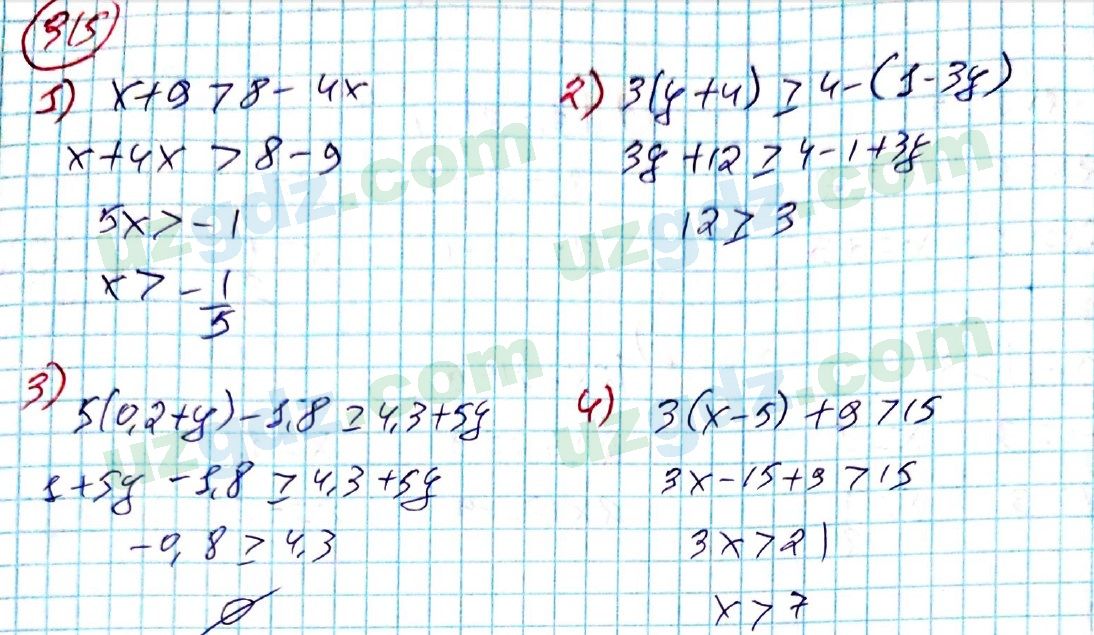 315
1) x+9 > 8 - 4x
x+4x > 8-9
5x > -1
x > -1/5
2) 3(y+4) ≥ 4-(1-3y)
3y+12 ≥ 4-1+3y
12 ≥ 3
3) 5(0,2+y)-1,8 ≥ 4,3+5y
1+5y-1,8 ≥ 4,3+5y
-0,8 ≥ 4,3
∅
4) 3(x-5)+9 > 15
3x-15+9 > 15
3x > 21
x > 7
uzgdz.com
uzgdz.com
uzgdz.com
uzgdz.com